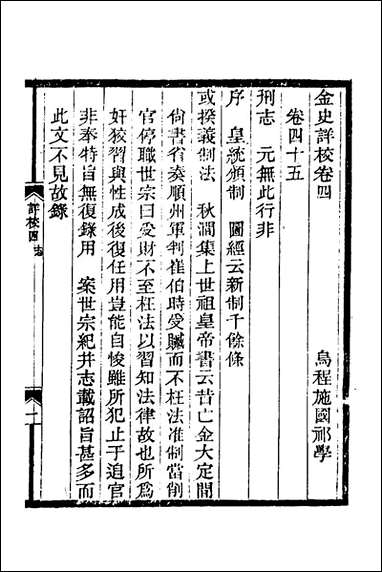 金史詳校卷四
烏程施國祁學
卷四十五
刑志　元無此行非
序　皇統頒制　圖經云新制千餘條
或揆義制法　秋澗集上世祖皇帝書云昔亡金大定間
尚書省奏順州軍判崔伯時受贓而不枉法准制當削
官停職世宗曰受財不至枉法以習知法律故也所爲
奸狡習與性成後復任用豈能自悛雖所犯止于追官
非奉特旨無復錄用　案世宗紀并志載詔旨甚多而
此文不見故錄
詳校四　志
一